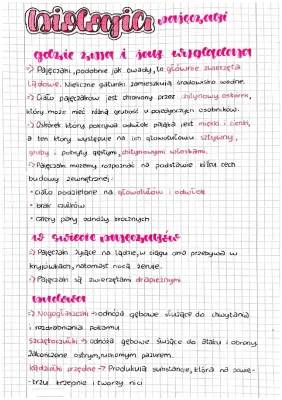 biologia pajęczaki
gdzie żyją i jak wyglądają
-> Pajęczaki, podobnie jak owady, to głównie zwierzęta
lądowe. Nieliczne gatunki zamieszkują środowisko wodne.
-> Ciało pajęczaków jest chronione przez chitynowy oskórek,
który może mieć różną grubość u poszczególnych osobników.
-> Oskórek, który pokrywa odwłok pająka jest miękki i cienki,
a ten który występuje na ich głowotułowiu sztywny,
gruby i pokryty gęstymi, chitynowymi włoskami.
-> Pajęczaki możemy rozpoznać na podstawie kilku cech
budowy zewnętrznej:
• ciało podzielone na głowotułów i odwłok
• brak czułków
• cztery pary odnóży krocznych
w świecie pajęczaków
-> Pajęczaki żyjące na lądzie, w ciągu dnia przebywa w
kryjówkach, natomiast nocą żeruje.
-> Pajęczaki są zwierzętami drapieżnymi
budowa
-> Nogogłaszczki -> odnóża gębowe służące do chwytania
i rozdrabniania pokarmu
szczękoczułki -> odnóża gębowe służące do ataku i obrony.
Zakończone ostrym, ruchomym pazurem.
kądziołki przędne -> Produkują substancję, która na powie-
-trzu krzepnie i tworzy nici